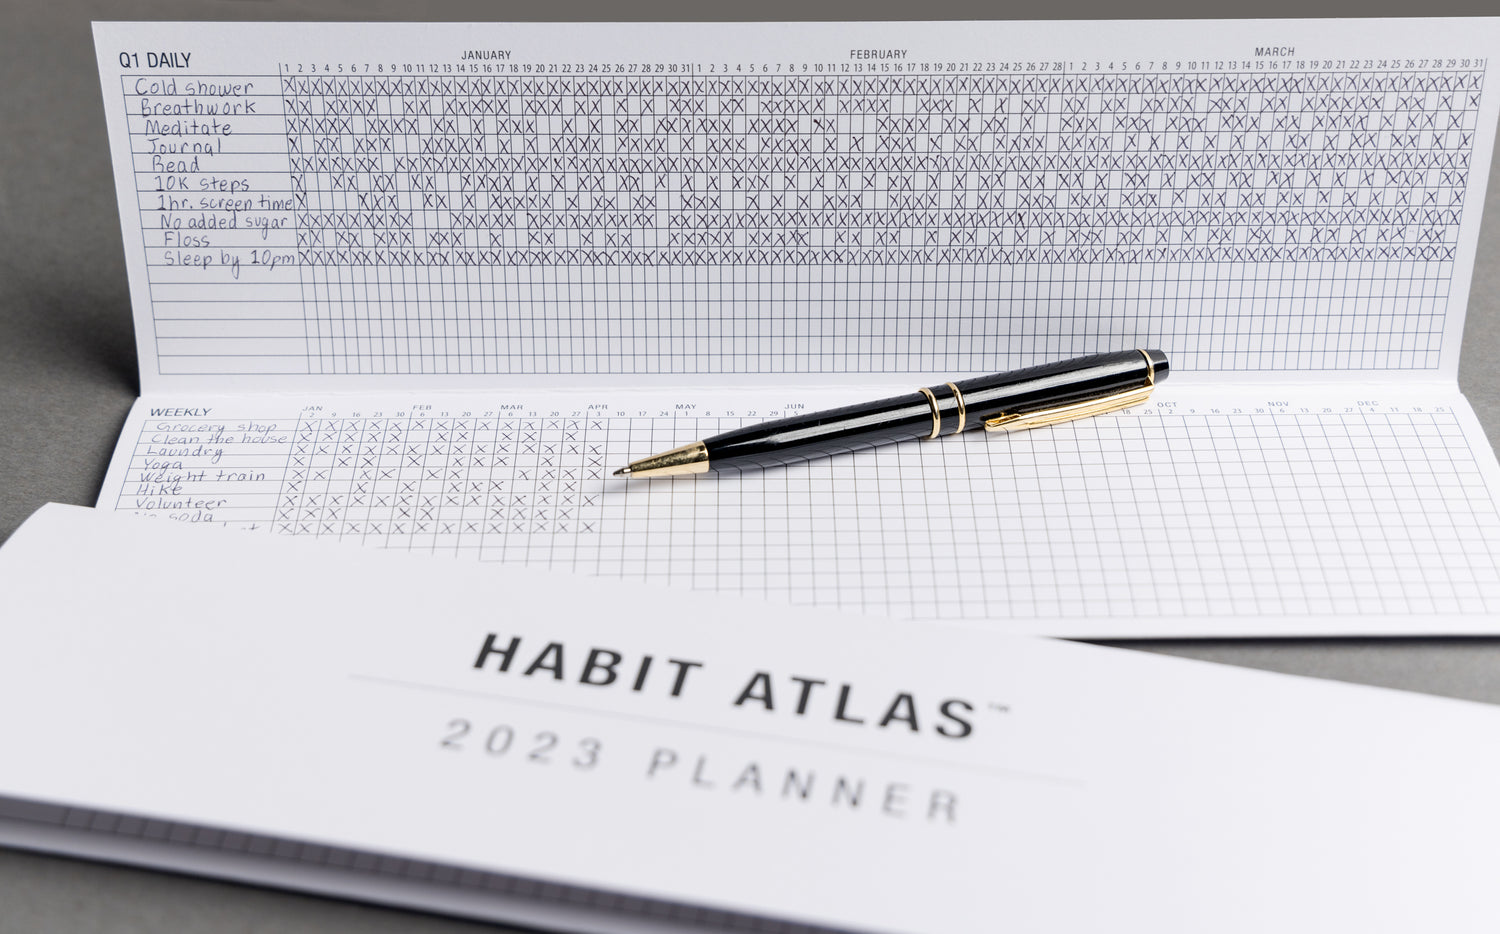 Q1 DAILY
JANUARY FEBRUARY MARCH
1 2 3 4 5 6 7 8 9 10 11 12 13 14 15 16 17 18 19 20 21 22 23 24 25 26 27 28 29 30 31 1 2 3 4 5 6 7 8 9 10 11 12 13 14 15 16 17 18 19 20 21 22 23 24 25 26 27 28 1 2 3 4 5 6 7 8 9 10 11 12 13 14 15 16 17 18 19 20 21 22 23 24 25 26 27 28 29 30 31
Cold shower
Breathwork
Meditate
Journal
Read
10K steps
1hr. screen time
No added sugar
Floss
Sleep by 10pm
WEEKLY
JAN FEB MAR APR MAY JUN OCT NOV DEC
2 9 16 23 30 6 13 20 27 6 13 20 27 3 10 17 24 1 8 15 22 29 5 18 25 2 9 16 23 30 6 13 20 27 4 11 18 25
Grocery shop
Clean the house
Laundry
Yoga
Weight train
Hike
Volunteer
soda
HABIT ATLAS™
2023 PLANNER